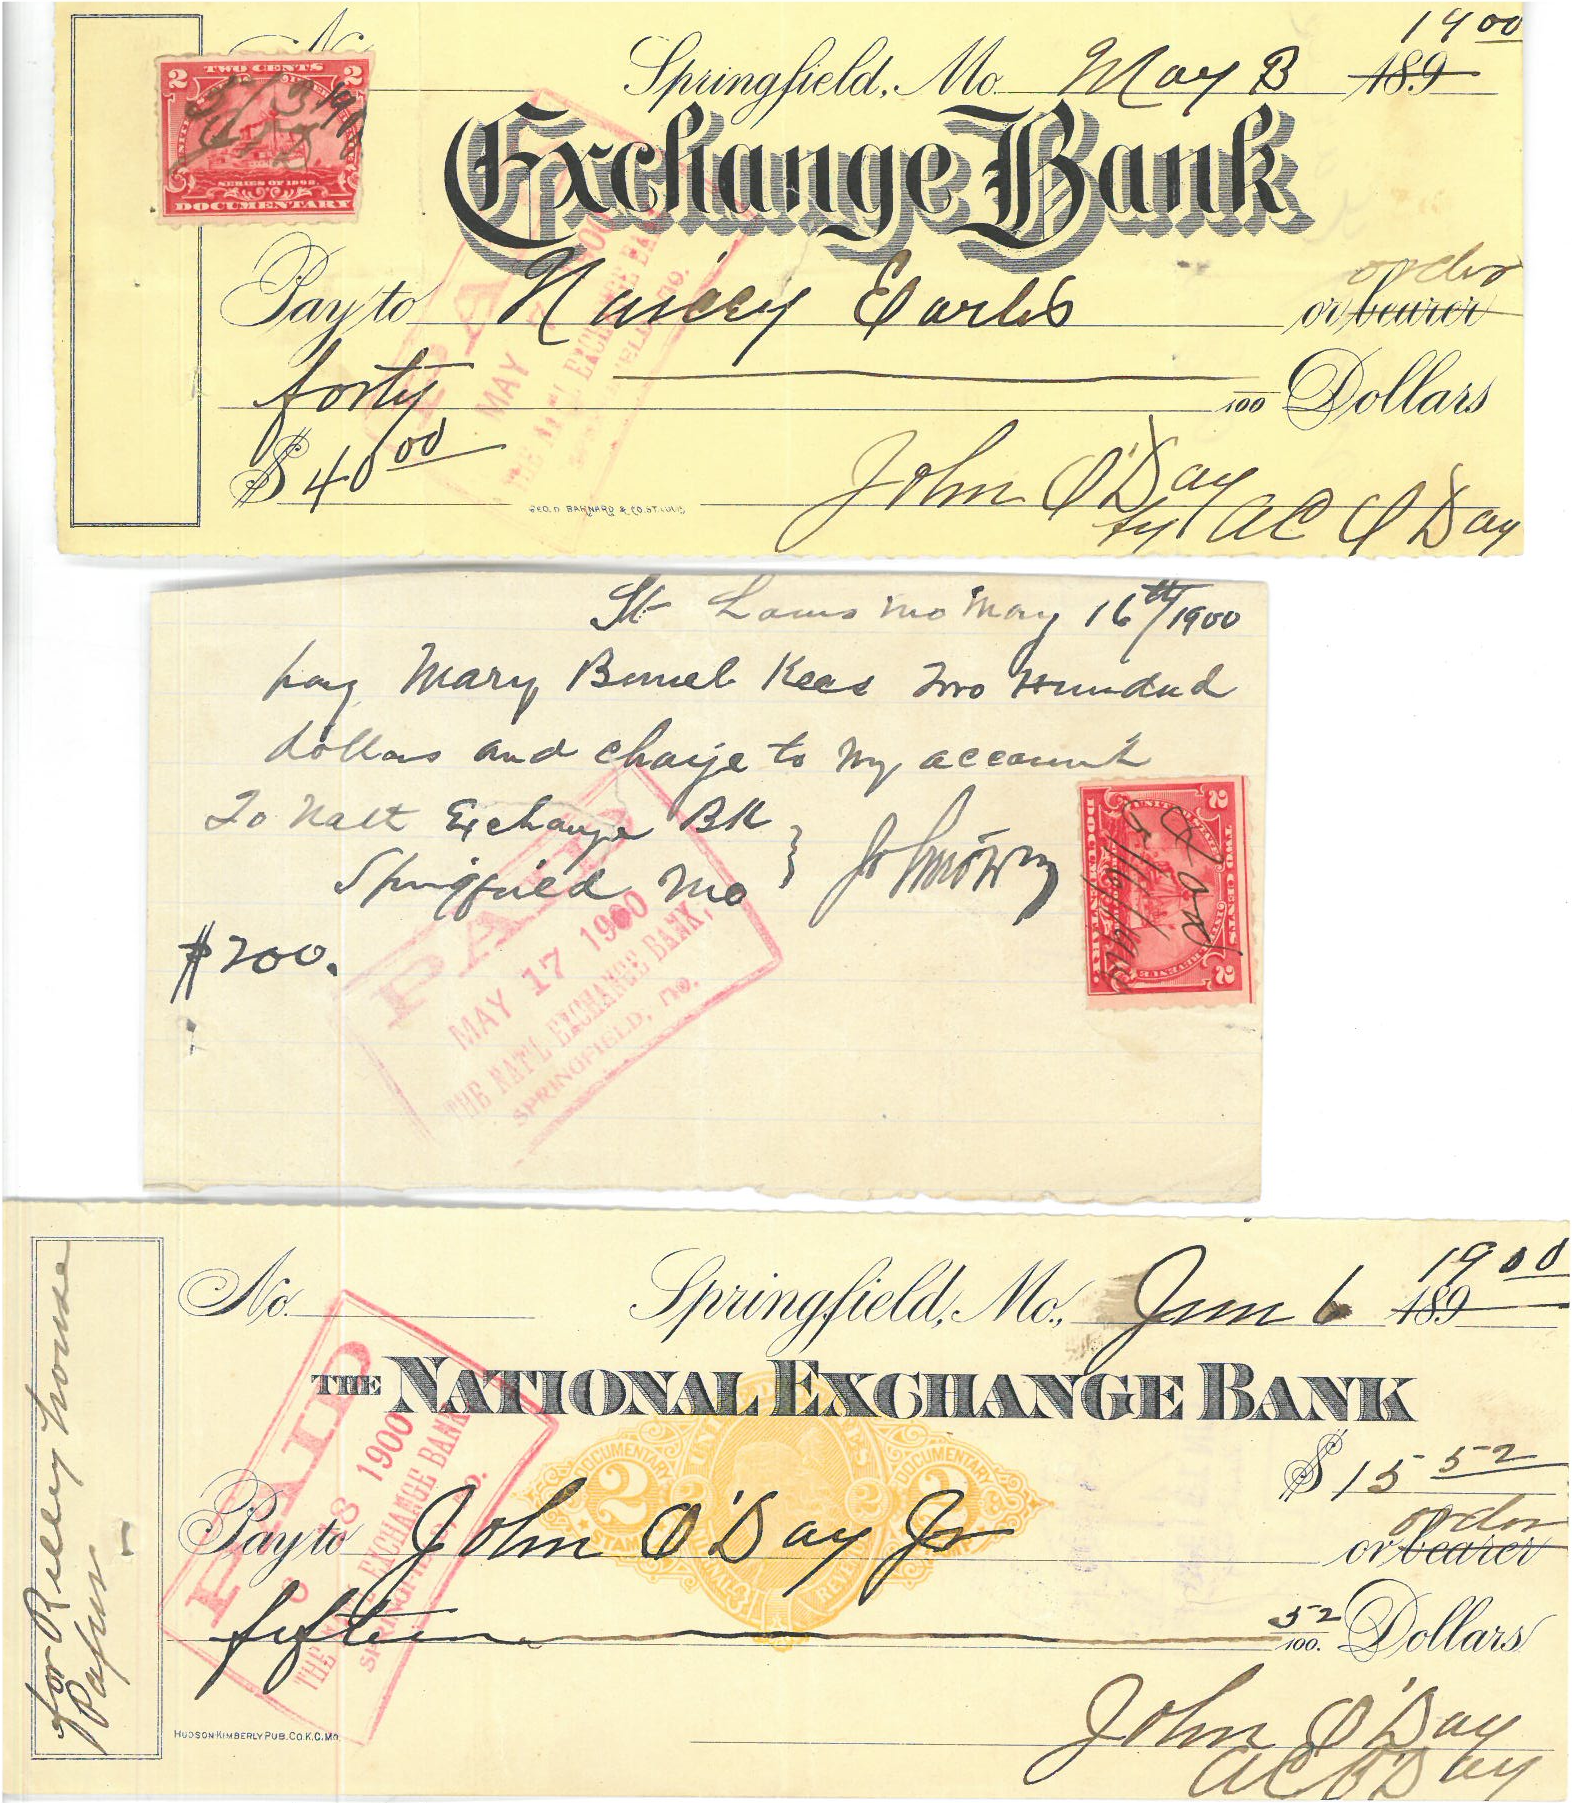 No
1900
Springfield, Mo. May 189
TWO CENTS
2 2
SERIES OF 1898.
DOCUMENTARY
Exchange Bank
order
Pay to or bearer
forty 100 Dollars
$ 40 00
PAID
MAY 1900
THE NAT'L EXCHANGE BANK
SPRINGFIELD, MO.
GEO. D. BARNARD & CO. ST. LOUIS
John O'Day
by AC O'Day
St Louis Mo May 16th/1900
pay Mary Kees Two Hundred
dollars and charge to my account
To Natl Exchange Bk
Springfield Mo
$200.
PAID
MAY 17 1900
THE NAT'L EXCHANGE BANK,
SPRINGFIELD, MO.
TWO CENTS
2 2
DOCUMENTARY
O'Day
5/16/1900
for Relly house
Papers
1900
No. Springfield, Mo., Jun 6 189
THE NATIONAL EXCHANGE BANK
$ 15 52
order
Pay to John O'Day Jr or bearer
fifteen 52/100. Dollars
PAID
8 1900
THE NAT'L EXCHANGE BANK
SPRINGFIELD, MO.
DOCUMENTARY DOCUMENTARY
2 2
HUDSON-KIMBERLY PUB. CO. K.C. MO.
John O'Day
AC O'Day